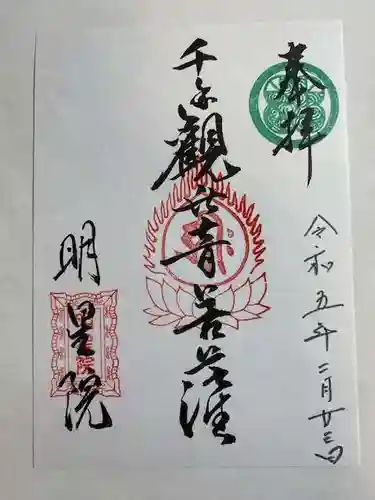 奉拝
令和五年二月廿三日
千手觀世音菩薩
明星院